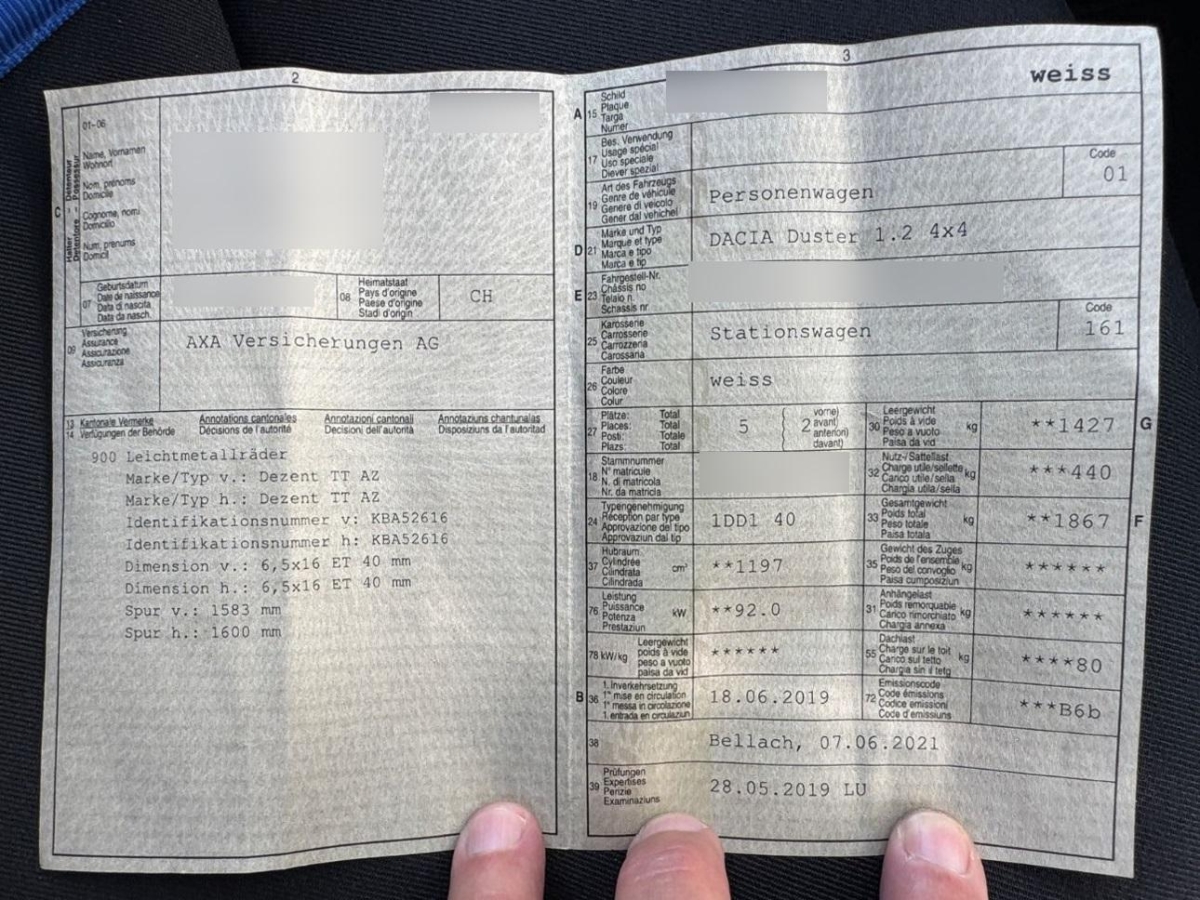 2
01-06
C
Halter Détenteur
Detentore Possessur
Name, Vornamen
Wohnort
Nom, prénoms
Domicile
Cognome, nomi
Domicilio
Num, prenums
Domicil
07
Geburtsdatum
Date de naissance
Data di nascita
Data da nasch.
08
Heimatstaat
Pays d'origine
Paese d'origine
Stadi d'origin
CH
09
Versicherung
Assurance
Assicurazione
Assicuranza
AXA Versicherungen AG
13 Kantonale Vermerke Annotations cantonales Annotazioni cantonali Annotaziuns chantunalas
14 Verfügungen der Behörde Décisions de l'autorité Decisioni dell'autorità Disposiziuns da l'autoritad
900 Leichtmetallräder
Marke/Typ v.: Dezent TT AZ
Marke/Typ h.: Dezent TT AZ
Identifikationsnummer v: KBA52616
Identifikationsnummer h: KBA52616
Dimension v.: 6,5x16 ET 40 mm
Dimension h.: 6,5x16 ET 40 mm
Spur v.: 1583 mm
Spur h.: 1600 mm
3
weiss
A 15
Schild
Plaque
Targa
Numer
17
Bes. Verwendung
Usage spécial
Uso speciale
Diever spezial
19
Art des Fahrzeugs
Genre de véhicule
Genere di veicolo
Gener dal vehichel
Personenwagen
Code
01
D 21
Marke und Typ
Marque et type
Marca e tipo
Marca e tip
DACIA Duster 1.2 4x4
E 23
Fahrgestell-Nr.
Châssis no
Telaio n.
Schassis nr
25
Karosserie
Carrosserie
Carrozzeria
Carossaria
Stationswagen
Code
161
26
Farbe
Couleur
Colore
Colur
weiss
27
Plätze: Total
Places: Total
Posti: Totale
Plazs: Total
5
2
vorne)
avant)
anteriori)
davant)
30
Leergewicht
Poids à vide
Peso a vuoto
Paisa da vid
kg
**1427
G
18
Stammnummer
N° matricule
N. di matricola
Nr. da matricla
32
Nutz-/Sattellast
Charge utile/sellette
Carico utile/sella
Chargia utila/sella
kg
***440
24
Typengenehmigung
Réception par type
Approvazione del tipo
Approvaziun dal tip
1DD1 40
33
Gesamtgewicht
Poids total
Peso totale
Paisa totala
kg
**1867
F
37
Hubraum
Cylindrée
Cilindrata
Cilindrada
cm³
**1197
35
Gewicht des Zuges
Poids de l'ensemble
Peso del convoglio
Paisa cumposiziun
kg
******
76
Leistung
Puissance
Potenza
Prestaziun
kW
**92.0
31
Anhängelast
Poids remorquable
Carico rimorchiato
Chargia annexa
kg
******
78 kW/kg
Leergewicht
poids à vide
peso a vuoto
paisa da vid
******
55
Dachlast
Charge sur le toit
Carico sul tetto
Chargia sin il tetg
kg
****80
B 36
1. Inverkehrsetzung
1re mise en circulation
1a messa in circolazione
1. entrada en circulaziun
18.06.2019
72
Emissionscode
Code émissions
Codice emissioni
Code d'emissiuns
***B6b
38
Bellach, 07.06.2021
39
Prüfungen
Expertises
Perizie
Examinaziuns
28.05.2019 LU